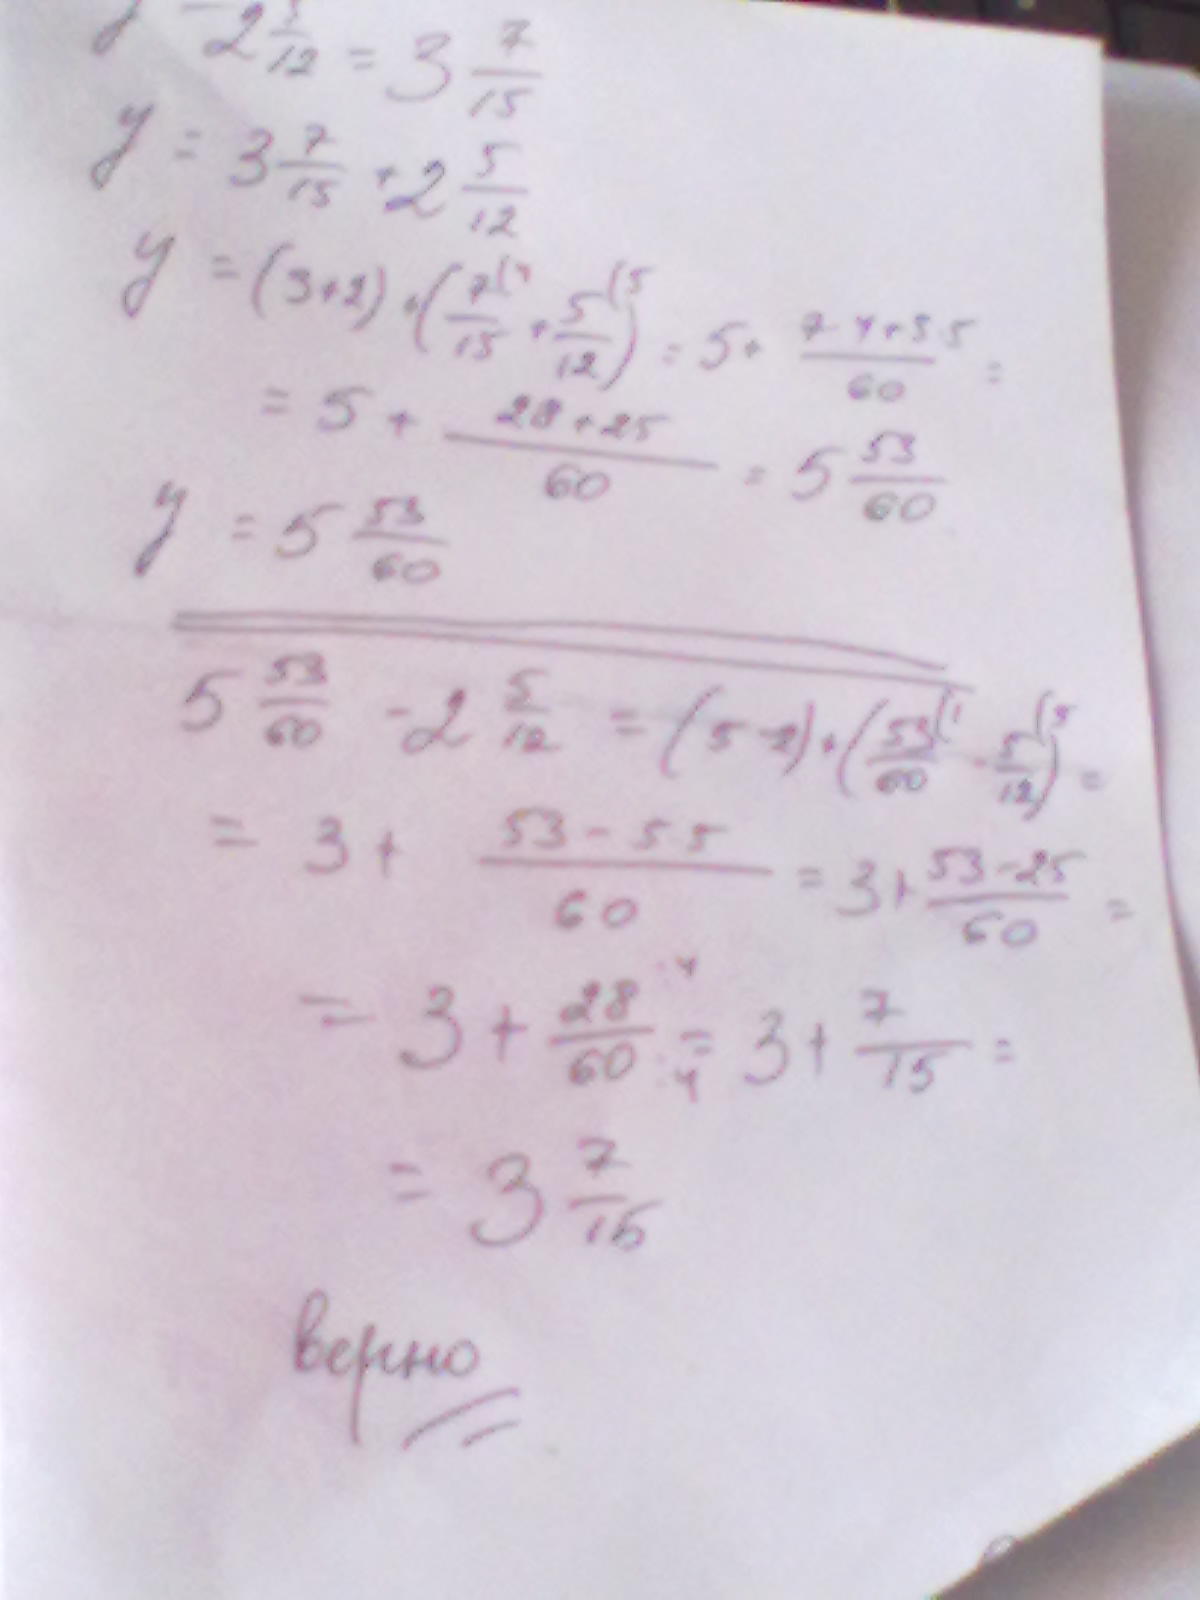 y - 2 5/12 = 3 7/15
y = 3 7/15 + 2 5/12
y = (3+2) + (7/15 (4 + 5/12 (5) = 5 + 7·4+5·5/60 =
= 5 + 28+25/60 = 5 53/60
y = 5 53/60
5 53/60 - 2 5/12 = (5-2) + (53/60 (1 - 5/12 (5) =
= 3 + 53-5·5/60 = 3 + 53-25/60 =
= 3 + 28:4/60:4 = 3 + 7/15 =
= 3 7/15
верно